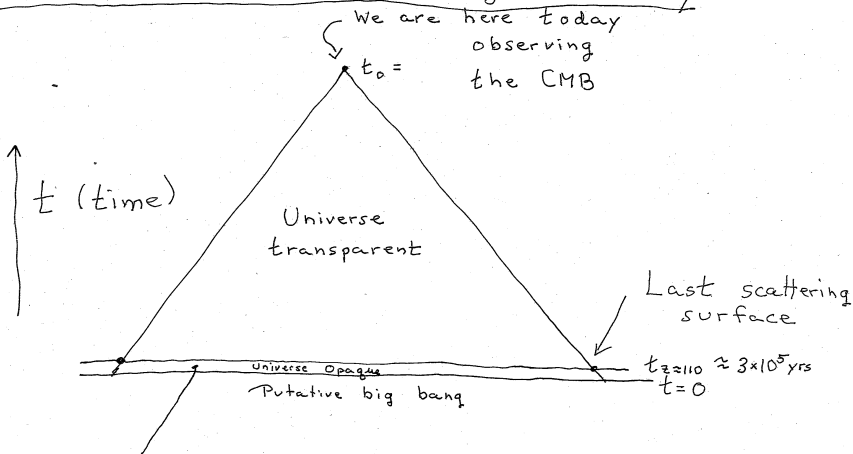 We are here today
observing
the CMB
t₀ =
t (time)
Universe
transparent
Last scattering
surface
Universe Opaque
t z≈110 ≈ 3×10⁵ yrs
t=0
Putative big bang